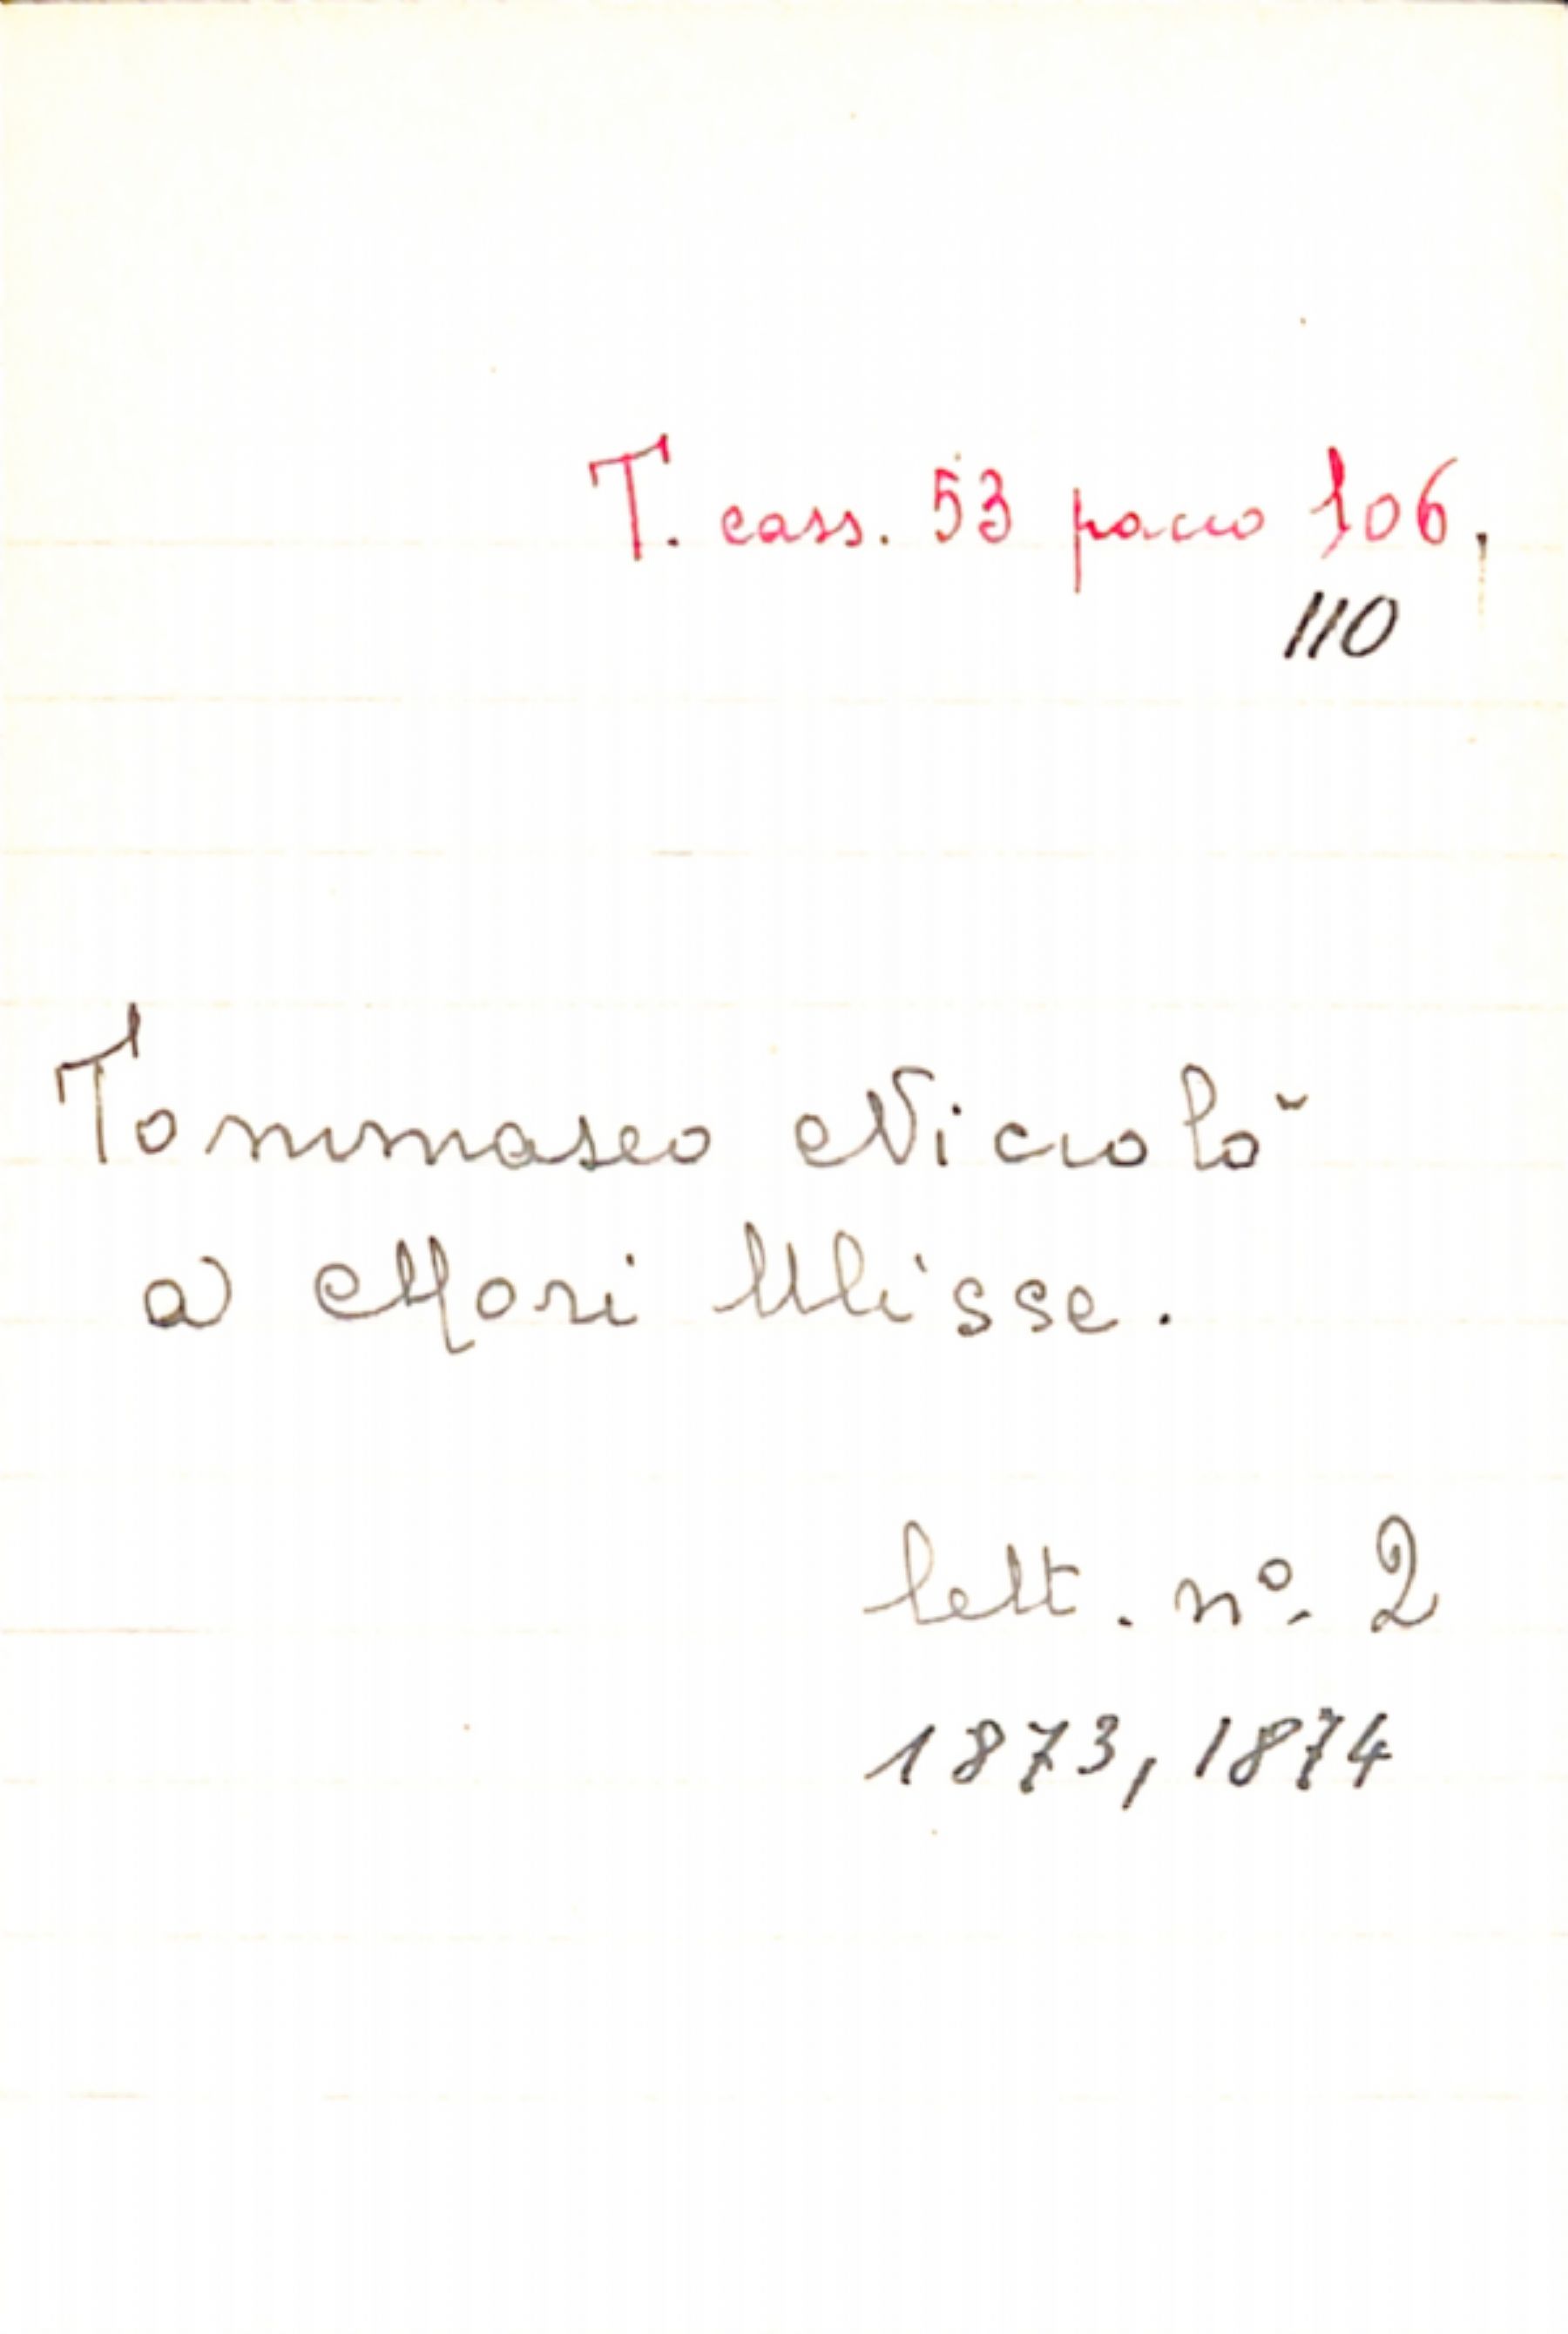 T. cass. 53 pacco 106,
110
Tommaseo Niccolò
a Mori Ulisse.
lett. nº. 2
1873, 1874